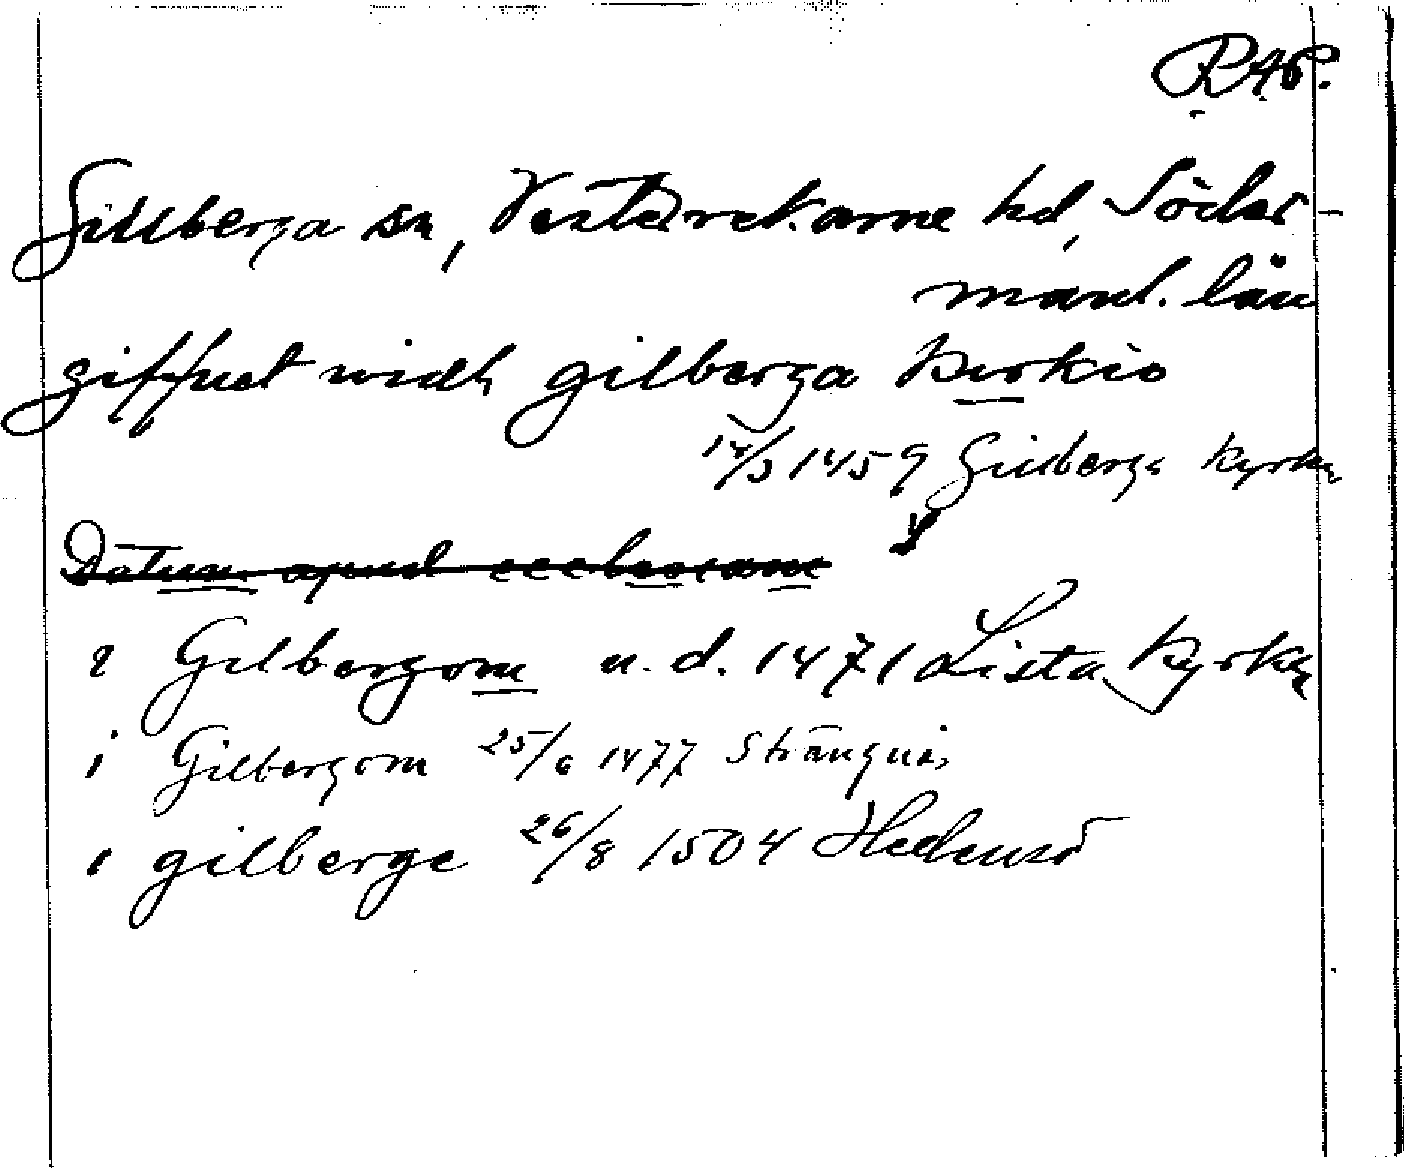 RAP.
Gillberga sn, Vesterrekarne hd, Söder-
manl. län
giffuet widh gilberga kirkio
14/3 1459 Gillberga kyrka
Datum apud ecclesiam
i Gilbergom u. d. 1471 Lista kyrka
i Gilbergom 25/6 1477 Strängnäs
i gilberge 26/8 1504 Hedensö